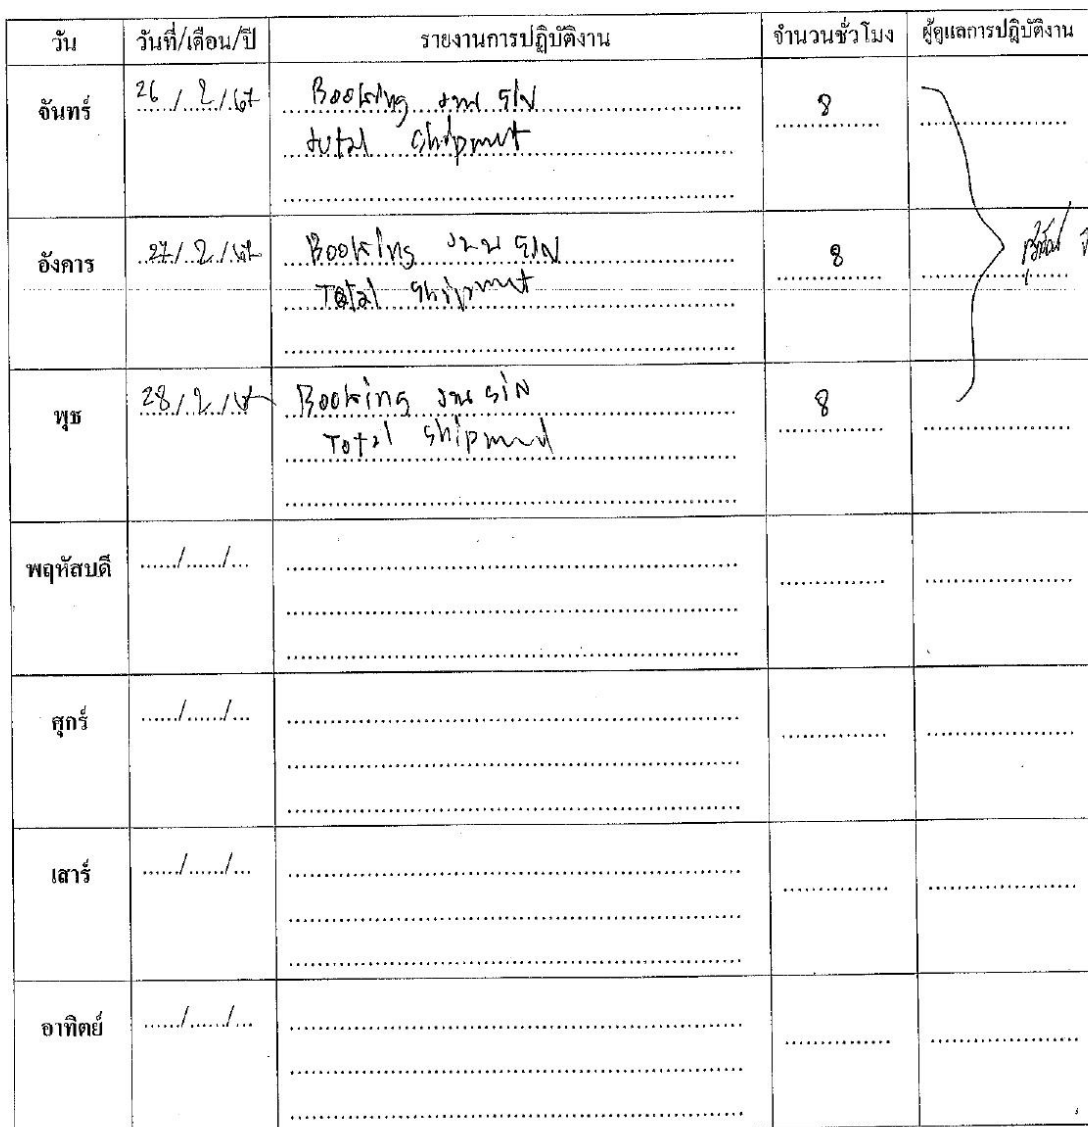 วัน วันที่/เดือน/ปี รายงานการปฏิบัติงาน จำนวนชั่วโมง ผู้ดูแลการปฏิบัติงาน
จันทร์ 26 / 2 / 67 Booking งาน SIN 8
total shipment
อังคาร 27 / 2 / 67 Booking งาน SIN 8
Total shipment
พุธ 28 / 2 / 67 Booking งาน SIN 8
Total shipment
พฤหัสบดี ....../....../...
ศุกร์ ....../....../...
เสาร์ ....../....../...
อาทิตย์ ....../....../...